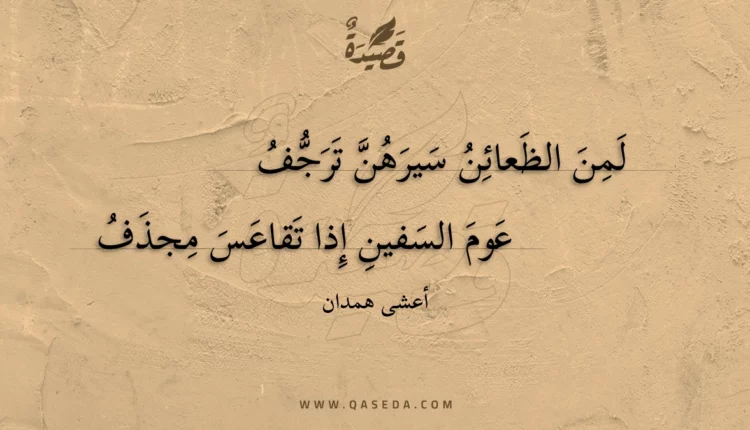 قَصِيدَةٌ
لَمِنَ الظَعائِنُ سَيرَهُنَّ تَرَجُّفُ
عَومَ السَفينِ إِذا تَقاعَسَ مِجذَفُ
أعشى همدان
WWW.QASEDA.COM